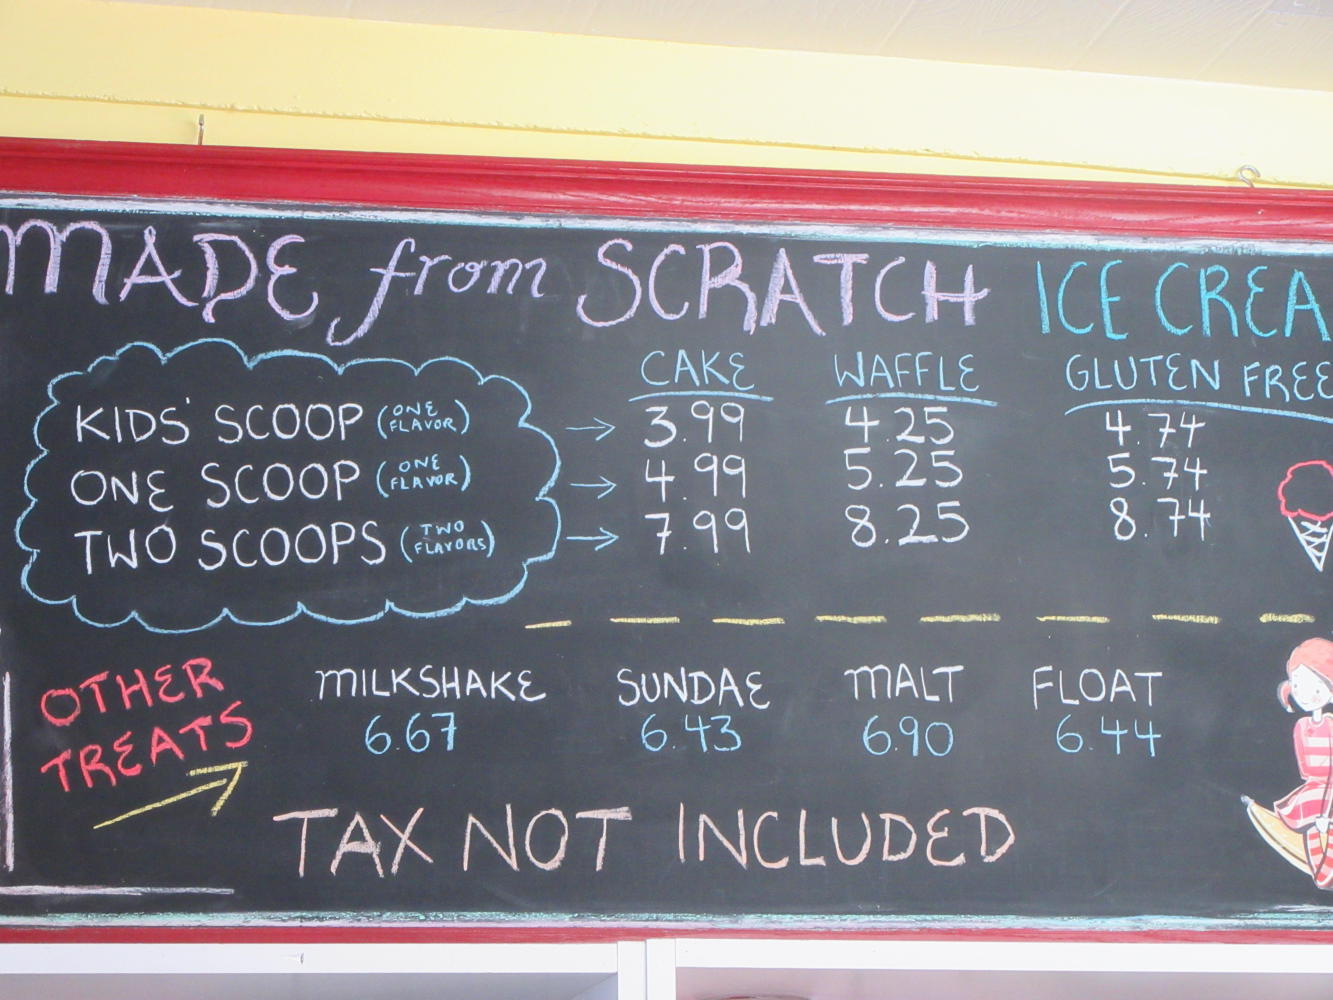 MADE from SCRATCH ICE CREA
CAKE WAFFLE GLUTEN FREE
KIDS' SCOOP (ONE FLAVOR) → 3.99 4.25 4.74
ONE SCOOP (ONE FLAVOR) → 4.99 5.25 5.74
TWO SCOOPS (TWO FLAVORS) → 7.99 8.25 8.74
OTHER TREATS
MILKSHAKE SUNDAE MALT FLOAT
6.67 6.43 6.90 6.44
TAX NOT INCLUDED